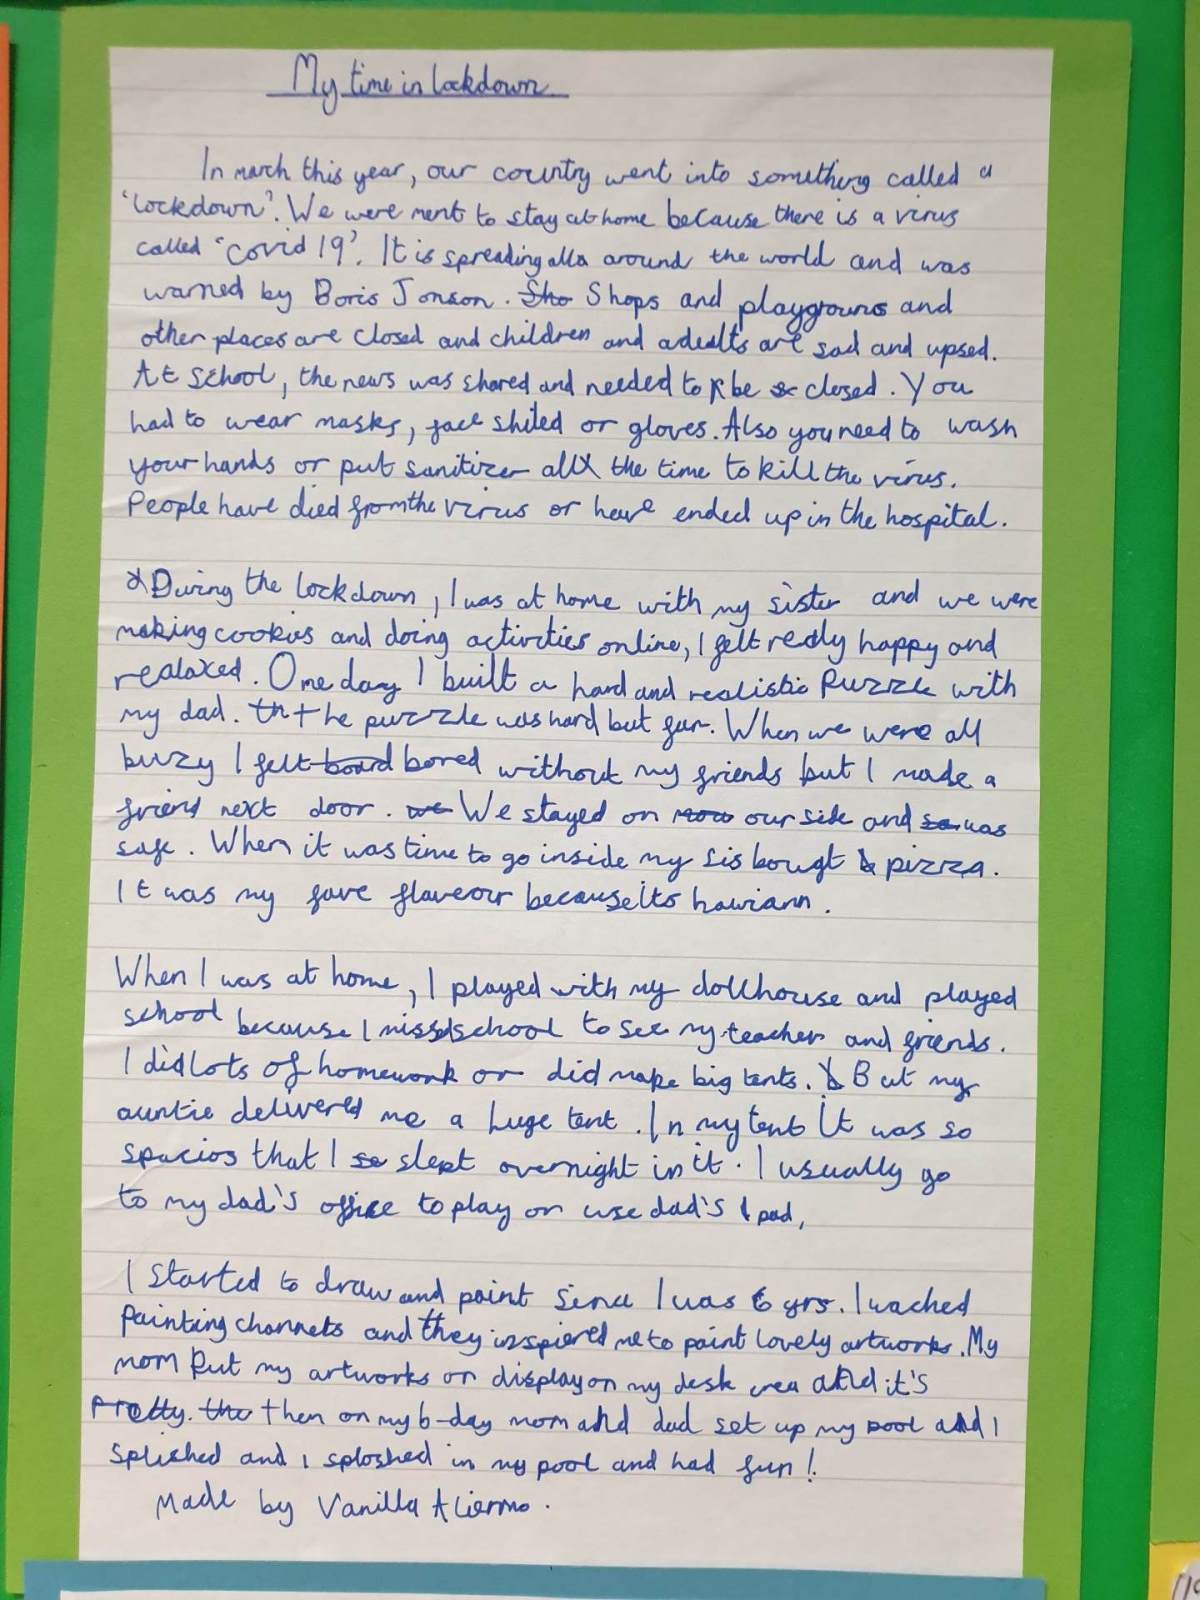 My time in lockdown
In march this year, our country went into something called a
'lockdown'. We were ment to stay at home because there is a virus
called 'covid 19'. It is spreading alla around the world and was
warned by Boris Jonson. Sho Shops and playgrouns and
other places are closed and children and adealts are sad and upsed.
At School, the news was shared and needed to be closed. You
had to wear masks, face shiled or gloves. Also you need to wash
your hands or put sanitizer all the time to kill the virus.
People have died from the virus or have ended up in the hospital.
During the lockdown, I was at home with my sister and we were
making cookies and doing activities online, I felt really happy and
realaxed. One day I built a hard and realistic Puzzle with
my dad. th the puzzle was hard but fun. When we were all
buzy I felt board bored without my friends but I made a
friend next door. we We stayed on our side and so was
safe. When it was time to go inside my sis bougt pizza.
It was my fave flaveour because its hawiann.
When I was at home, I played with my dollhouse and played
school because I missd school to see my teacher and friends.
I did lots of homework or did make big tents. But my
auntie delivered me a huge tent. In my tent it was so
spacios that I so slept overnight in it. I usually go
to my dad's office to play or use dad's Ipad,
I started to draw and paint sence I was 6 yrs. I wached
Painting channels and they inspiered me to paint lovely artworks. My
mom put my artworks on display on my desk area and it's
Pretty. the then on my b-day mom and dad set up my pool and I
splished and I sploshed in my pool and had fun!
Made by Vanilla Aliermo.